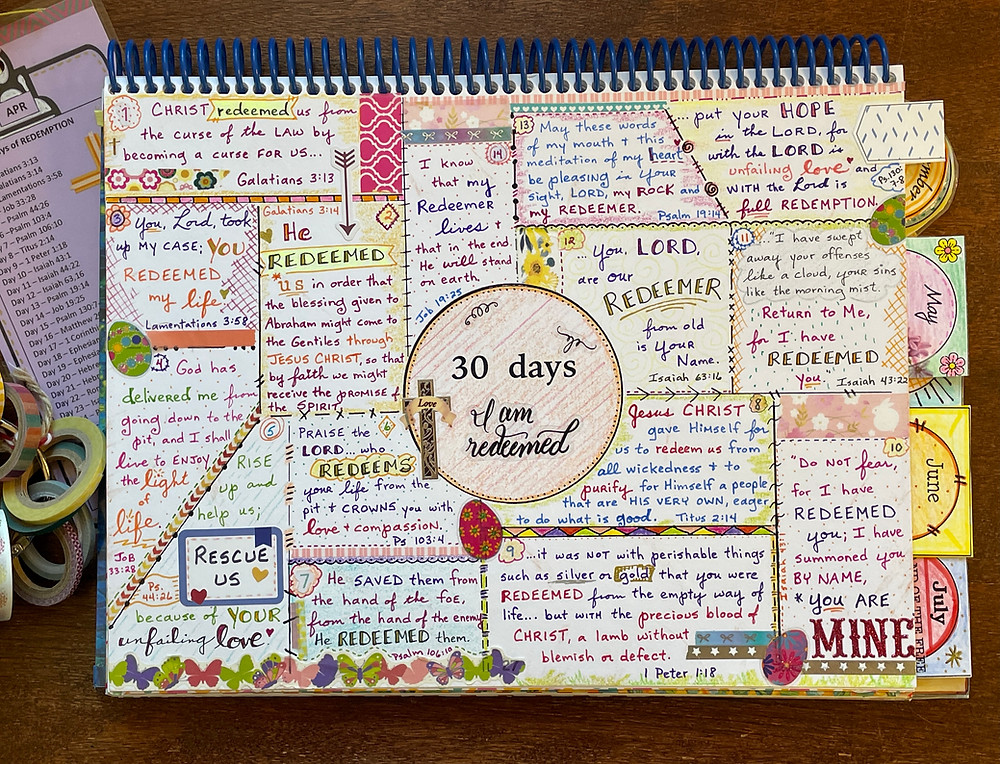 APR
ys of REDEMPTION
alatians 3:13
alatians 3:14
amentations 3:58
Job 33:28
Psalm 44:26
6 –Psalm 103:4
Day 8 – Titus 2:14
Day 9 – 1 Peter 1:18
Day 10 – Isaiah 43:1
Day 11 – Isaiah 44:22
Day 12 – Isaiah 63:16
Day 13 – Psalm 19:14
Day 14 – Job 19:25
Day 15 – Psalm 130:7
Day 16 – Matthew 2
Day 17 – 1 Corinthi
Day 18 – Ephesian
Day 19 – Ephesi
Day 20 – Hebre
Day 21 – Hebr
Day 22 –
Day 23 –
1
CHRIST redeemed us from
the curse of the LAW by
becoming a curse FOR US...
Galatians 3:13
2
Galatians 3:14
He
REDEEMED
us in order that
the blessing given to
Abraham might come to
the Gentiles through
JESUS CHRIST, so that
by faith we might
receive the PROMISE OF
the SPIRIT
3
You, Lord, took
up MY CASE; YOU
REDEEMED
my life.
Lamentations 3:58
4
God has
delivered me from
going down to the
pit, and I shall
live to ENJOY
the light
of
life.
JOB
33:28
5
RISE
up and
help us;
RESCUE
US
Ps.
44:26
because of YOUR
unfailing love
6
PRAISE the
LORD... who
REDEEMS
your life from the
pit + CROWNS you with
love + compassion.
Ps 103:4
7
He SAVED them from
the hand of the foe,
from the hand of the enemy
He REDEEMED them.
Psalm 106:10
8
Jesus CHRIST
gave Himself for
us to redeem us from
all wickedness + to
purify for Himself a people
that are HIS VERY OWN, eager
to do what is good. Titus 2:14
9
...it was NOT with perishable things
such as silver or gold that you were
REDEEMED from the empty way of
life... but with the precious blood of
CHRIST, a lamb without
blemish or defect.
1 Peter 1:18
10
"Do NOT fear,
for I have
REDEEMED
you; I have
summoned you
BY NAME,
* YOU ARE
MINE
11
..."I have swept
away your offenses
like a cloud, your sins
like the morning mist.
Return to Me,
for I have
REDEEMED
you. Isaiah 43:22
12
...you, LORD,
are our
REDEEMER
from old
is YOUR
Name.
Isaiah 63:16
13
May these words
of my mouth + this
meditation of my heart
be pleasing in your
sight, LORD, my ROCK and
my REDEEMER.
Psalm 19:14
14
I know
that my
Redeemer
lives +
that in the end
He will stand
on earth.
Job 19:25
...put your HOPE
in the LORD, for
with the LORD is
unfailing love and
WITH the Lord is
full REDEMPTION.
Ps. 130:
7-8
30 days
I am
redeemed
Love
mber
May
June
July